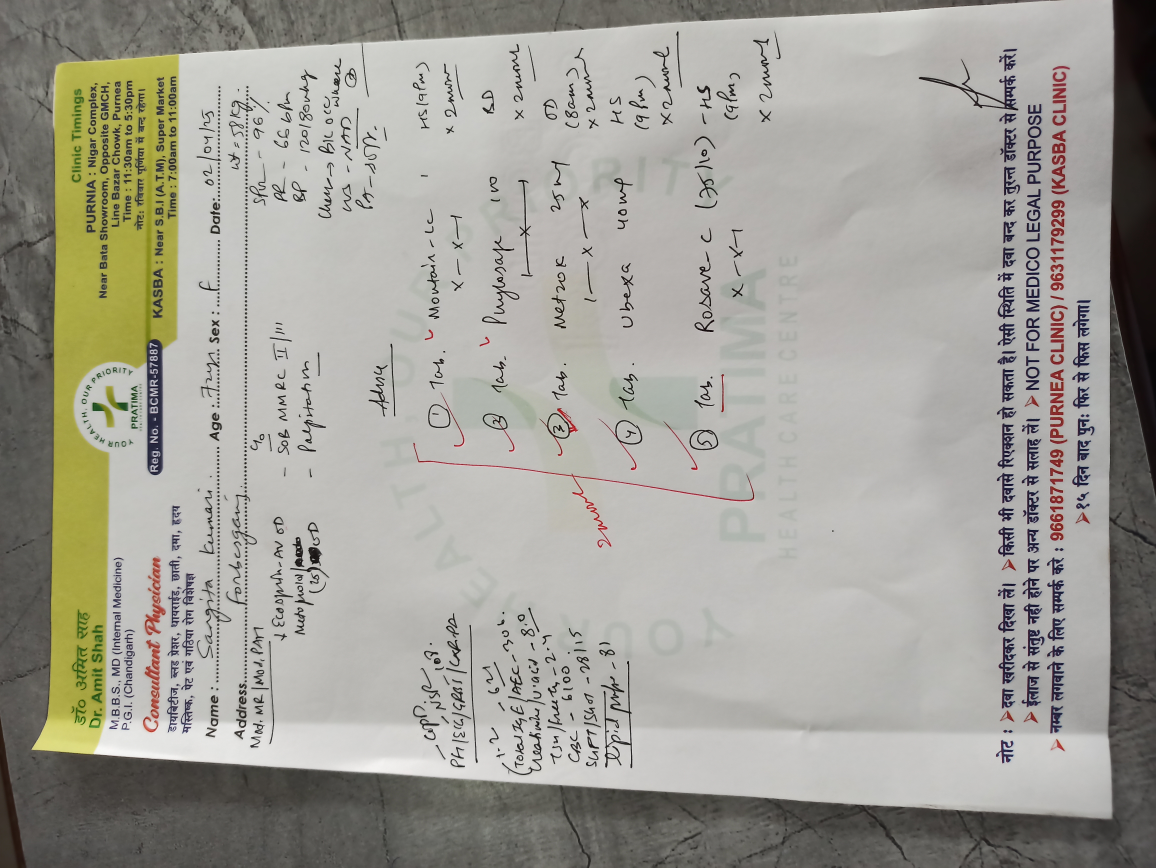 डॉ० अमित साह
Dr. Amit Shah
M.B.B.S., MD (Internal Medicine)
P.G.I. (Chandigarh)
Consultant Physician
डायबिटीज, ब्लड प्रेशर, थायराईड, छाती, दमा, हृदय
मस्तिष्क, पेट एवं गठिया रोग विशेषज्ञ
YOUR HEALTH, OUR PRIORITY
PRATIMA
Reg. No. - BCMR-57887
Clinic Timings
PURNIA : Nigar Complex,
Near Bata Showroom, Opposite GMCH,
Line Bazar Chowk, Purnea
Time : 11:30am to 5:30pm
नोट: रविवार पूर्णिया में बन्द रहेगा।
KASBA : Near S.B.I (A.T.M), Super Market
Time : 7:00am to 11:00am
Name : Sangita Kumari Age : Sex : F Date: 02/04/25
Address Forbesganj Wt = 58 Kg
Mod. MR | Mod. PAH
c/o
- SOB MMRC II/III
- Palpitation
Ecosprin-AV OD
(25) OD
- 96%
PR - 66 bpm
BP - 120/80 mmHg
Chest → B/L occ wheeze
- NAD
- COPD
TSH/free T4 - 2.4
CBC - 6100
SGPT/SGOT - 28/15
Lipid profile - 81
Advice
① Tab. Montair-LC 1 HS (9 Pm)
x - x - 1 x 2 month
② Tab. Phylosafe 100 BD
1 - x - 1 x 2 month
③ Tab. Metzok 25 mg OD
1 - x - x (8am)
x 2 month
④ Tab. Ubexa 40 mg HS
(9 Pm)
x 2 month
⑤ Tab. Rosave C (75/10) - HS
x - x - 1 (9 Pm)
x 2 month
2 month
YOUR HEALTH OUR PRIORITY
PRATIMA
HEALTHCARE CENTRE
नोट : ➤ दवा खरीदकर दिखा लें। ➤ किसी भी दवासे रिएक्शन हो सकता है। ऐसी स्थिति में दवा बन्द कर तुरन्त डॉक्टर से सम्पर्क करें।
➤ ईलाज से संतुष्ट नही होने पर अन्य डॉक्टर से सलाह लें। ➤ NOT FOR MEDICO LEGAL PURPOSE
➤ नम्बर लगवाने के लिए सम्पर्क करे : 9661871749 (PURNEA CLINIC) / 9631179299 (KASBA CLINIC)
➤ १५ दिन बाद पुनः फिर से फिस लगेगा।